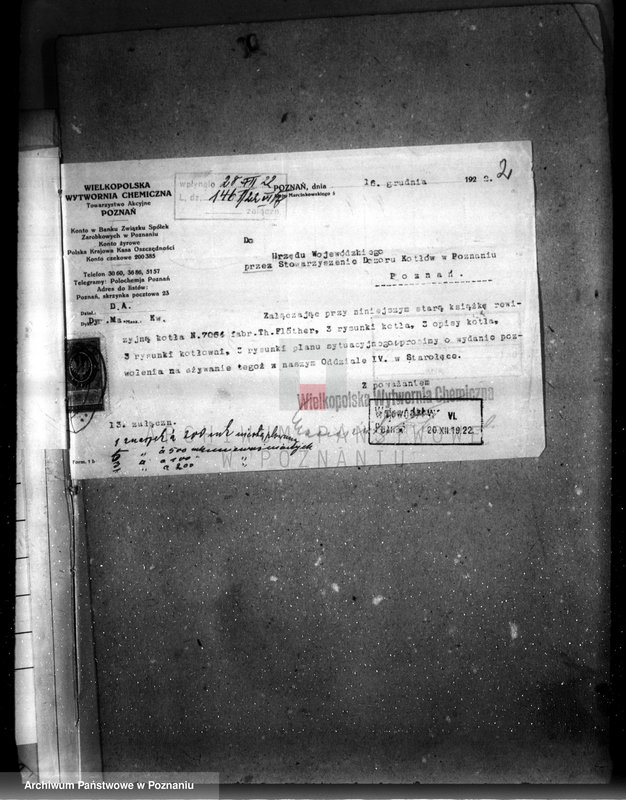 2
WIELKOPOLSKA
WYTWORNIA CHEMICZNA
Towarzystwo Akcyjne
POZNAŃ
Konto w Banku Związku Spółek
Zarobkowych w Poznaniu
Konto żyrowe
Polska Krajowa Kasa Oszczędności
Konto czekowe 200385
Telefon 3060, 3686, 5157
Telegramy: Polochemja Poznań
Adres do listów:
Poznań, skrzynka pocztowa 23
D.A.
Dy. Ma. Kw.
wpłynęło 28 XII 22
L. dz. 146
załączn
POZNAŃ, dnia 16. grudnia 1922.
Marcinkowskiego 5
Do
Urzędu Wojewódzkiego
przez Stowarzyszenie Dozoru Kotłów w Poznaniu
Poznań.
Załączając przy niniejszym starą książkę rewi-
zyjną kotła N.7064 fabr.Th.Flöther, 3 rysunki kotła, 3 opisy kotła,
3 rysunki kotłowni, 3 rysunki planu sytuacyjnego, prosimy o wydanie poz-
wolenia na używanie tegoż w naszym Oddziale IV. w Starołęce.
Z poważaniem
Wielkopolska Wytwornia Chemiczna
13. załączn.
VI.
20 XII 1922
à 500
à 100
à 200
Form. 1 b
ARCHIWUM PAŃSTWOWE
W POZNANIU
Archiwum Państwowe w Poznaniu